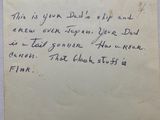 This is your Dad's ship and
crew over Japan. Your Dad
is a tail gunner. Has a 20mm.
canon. That black stuff is
Flak.